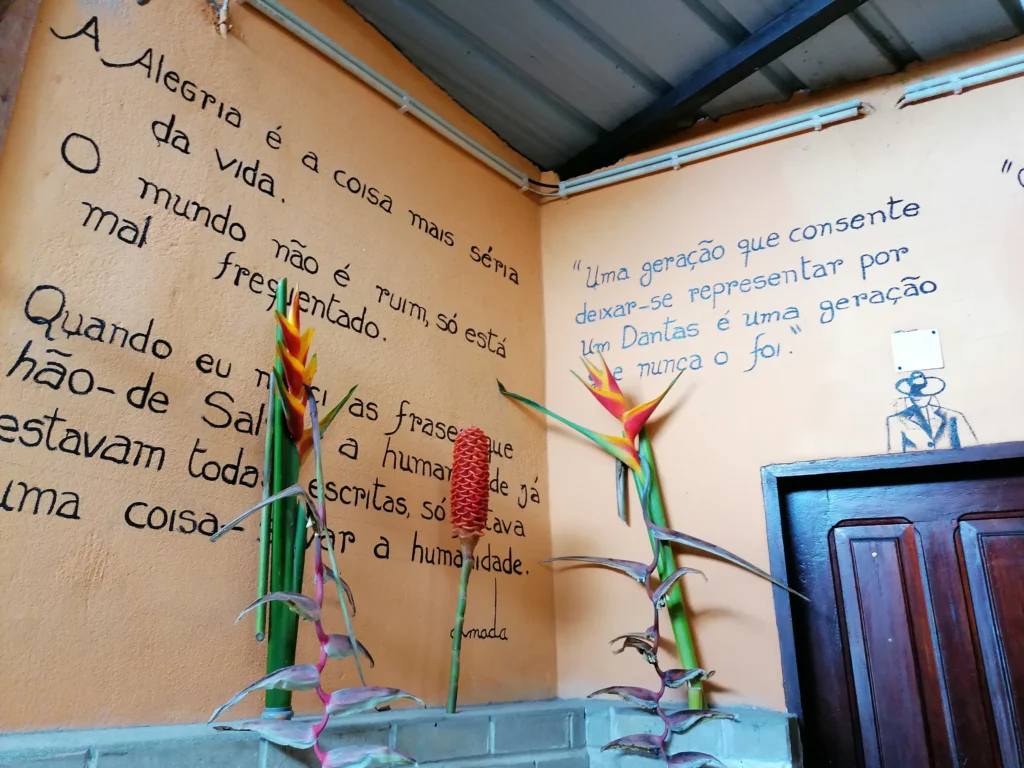 A Alegria é a coisa mais séria
da vida.
O mundo não é ruim, só está
mal frequentado.
Quando eu nasci as frases que
hão-de Salvar a humanidade já
estavam todas escritas, só faltava
uma coisa- salvar a humanidade.
Almada
"Uma geração que consente
deixar-se representar por
um Dantas é uma geração
que nunca o foi."